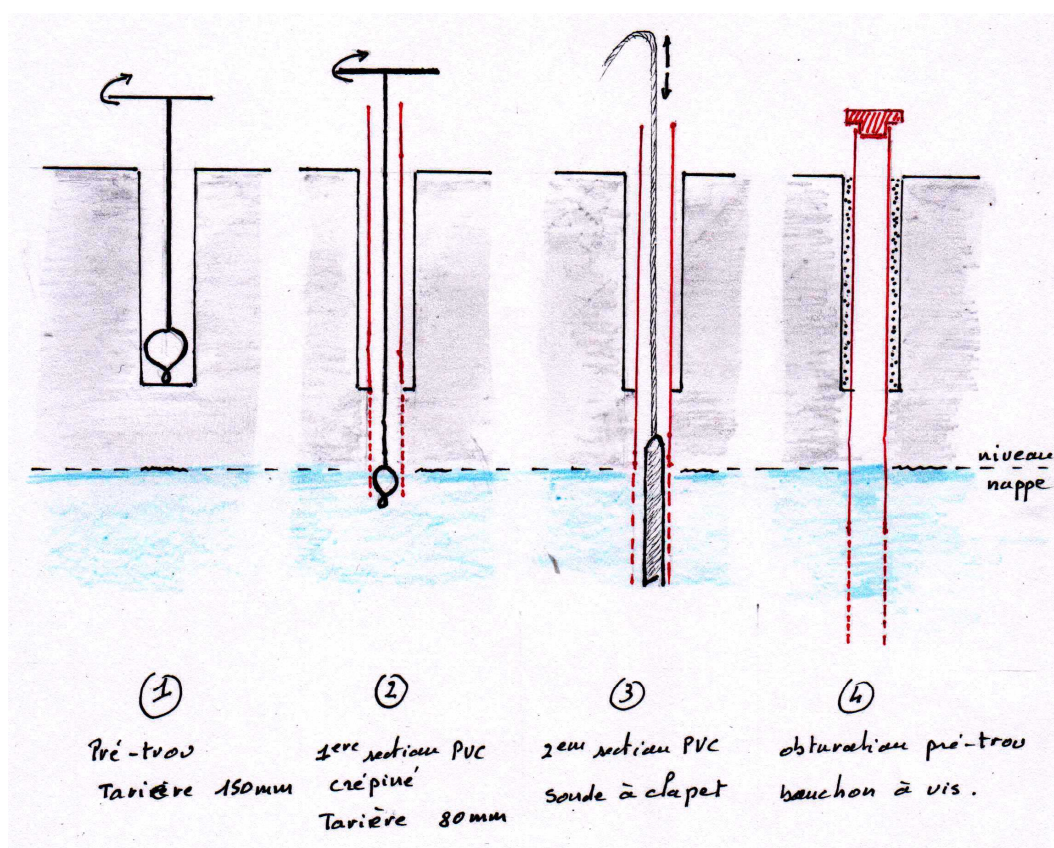 niveau
nappe
1
Pré-trou
Tarière 150mm
2
1ere section PVC
crépiné
Tarière 80mm
3
2em section PVC
Sonde à clapet
4
obturation pré-trou
bouchon à vis.